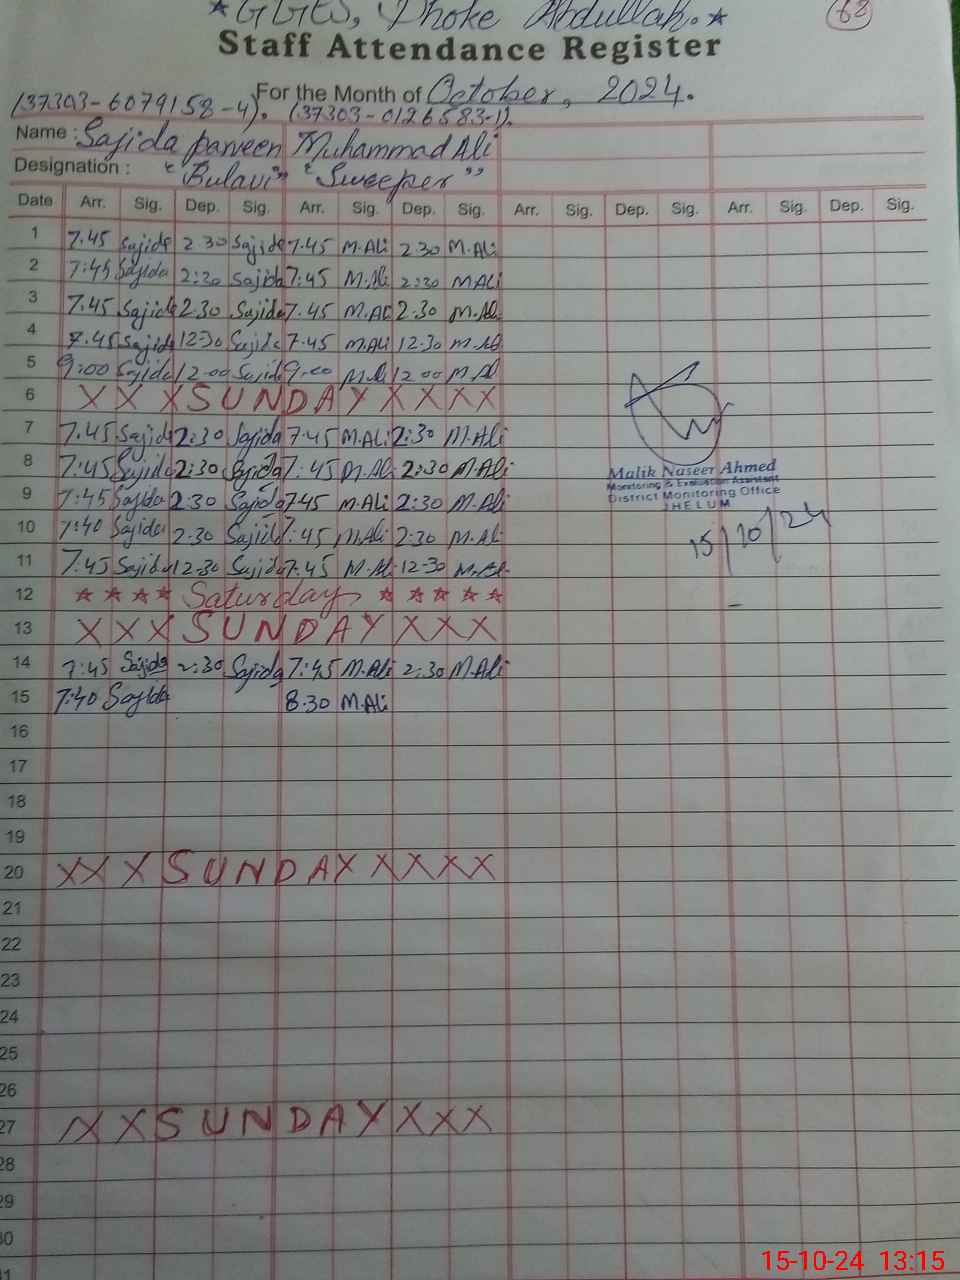 ★ GGES, Dhoke Abdullah. ★ 62
Staff Attendance Register
For the Month of October, 2024.
(37303-6079158-4). (37303-0126583-1).
Name : Sajida parveen Muhammad Ali
Designation : "Bulavi" "Sweeper"
Date Arr. Sig. Dep. Sig. Arr. Sig. Dep. Sig. Arr. Sig. Dep. Sig. Arr. Sig. Dep. Sig.
1 7.45 Sajida 2.30 Sajida 7.45 M.Ali 2.30 M.Ali
2 7:45 Sajida 2:30 Sajida 7:45 M.Ali 2:30 M.Ali
3 7.45 Sajida 2.30 Sajida 7.45 M.Ali 2.30 M.Ali
4 7.45 Sajida 12-30 Sajida 7-45 M.Ali 12.30 M.Ali
5 9:00 Sajida 12-00 Sajida 9-00 M.Ali 12.00 M.Ali
6 X X X S U N D A Y X X X X
7 7.45 Sajida 2:30 Sajida 7.45 M.Ali 2:30 M.Ali
8 7:45 Sajida 2:30 Sajida 7:45 M.Ali 2:30 M.Ali
Malik Naseer Ahmed
Monitoring & Evaluation Assistant
District Monitoring Office
JHELUM
9 7:45 Sajida 2:30 Sajida 7:45 M.Ali 2:30 M.Ali
15/10/24
10 7:40 Sajida 2.30 Sajida 7:45 M.Ali 2:30 M.Ali
11 7:45 Sajida 12-30 Sajida 7.45 M.Ali 12-30 M.Ali
12 ★ ★ ★ ★ Saturday ★ ★ ★ ★ ★
13 X X X S U N D A Y X X X
14 7:45 Sajida 2:30 Sajida 7:45 M.Ali 2:30 M.Ali
15 7:40 Sajida 8.30 M.Ali
16
17
18
19
20 X X X S U N D A Y X X X X
21
22
23
24
25
26
27 X X X S U N D A Y X X X
28
29
30
31
15-10-24 13:15